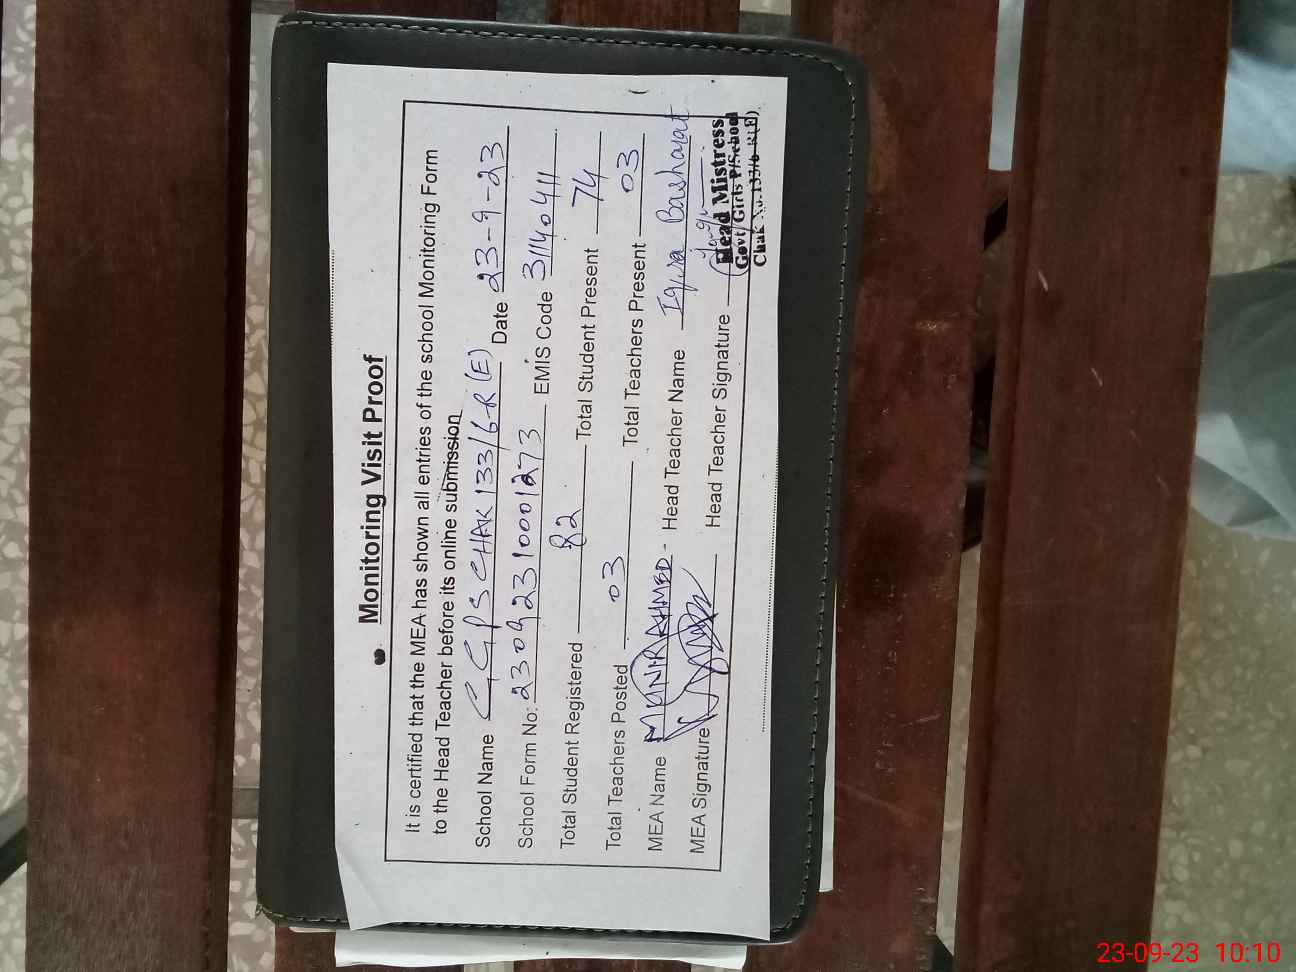 Monitoring Visit Proof
It is certified that the MEA has shown all entries of the school Monitoring Form
to the Head Teacher before its online submission
School Name GGPS CHAK 133/6-R (E) Date 23-9-23
School Form No: 23092310001273 EMIS Code 31140411
Total Student Registered 82 Total Student Present 74
Total Teachers Posted 03 Total Teachers Present 03
MEA Name MUNIR AHMED - Head Teacher Name Iqra Basharat
MEA Signature Head Teacher Signature
Head Mistress
Govt Girls P/School
Chak No. 133/6-R(E)
23-09-23 10:10